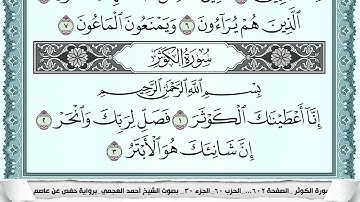 ٱلَّذِينَ هُمْ يُرَآءُونَ ٦ وَيَمْنَعُونَ ٱلْمَاعُونَ ٧
سُورَةُ الكَوْثَرِ
بِسْمِ ٱللَّهِ ٱلرَّحْمَٰنِ ٱلرَّحِيمِ
إِنَّآ أَعْطَيْنَٰكَ ٱلْكَوْثَرَ ١ فَصَلِّ لِرَبِّكَ وَٱنْحَرْ ٢
إِنَّ شَانِئَكَ هُوَ ٱلْأَبْتَرُ ٣
سورة الكوثر_ الصفحة ٦٠٢... الحزب ٦٠_ الجزء ٣٠_ بصوت الشيخ احمد العجمي_ برواية حفص عن عاصم